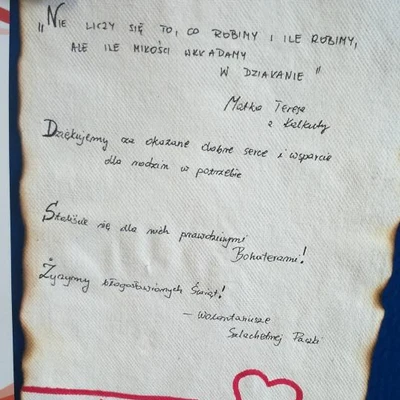 „NIE LICZY SIĘ TO, CO ROBIMY I ILE ROBIMY,
ALE ILE MIŁOŚCI WKŁADAMY
W DZIAŁANIE"
Matka Teresa
z Kalkuty
Dziękujemy za okazane dobre serce i wsparcie
dla rodzin w potrzebie
Staliście się dla nich prawdziwymi
Bohaterami!
Życzymy błogosławionych Świąt!
– Wolontariusze
Szlachetnej Paczki